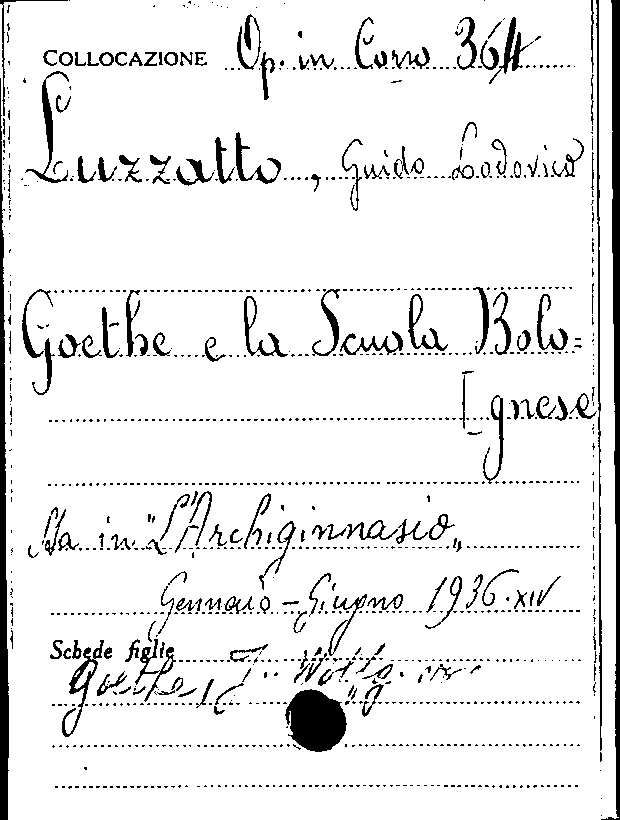 COLLOCAZIONE Op. in Corso 364
Luzzatto, Guido Lodovico
Goethe e la Scuola Bolo=
[gnese
Sta in "L'Archiginnasio„
Gennaio - Giugno 1936.XIV
Schede figlie
Goethe, J. Wolfg.